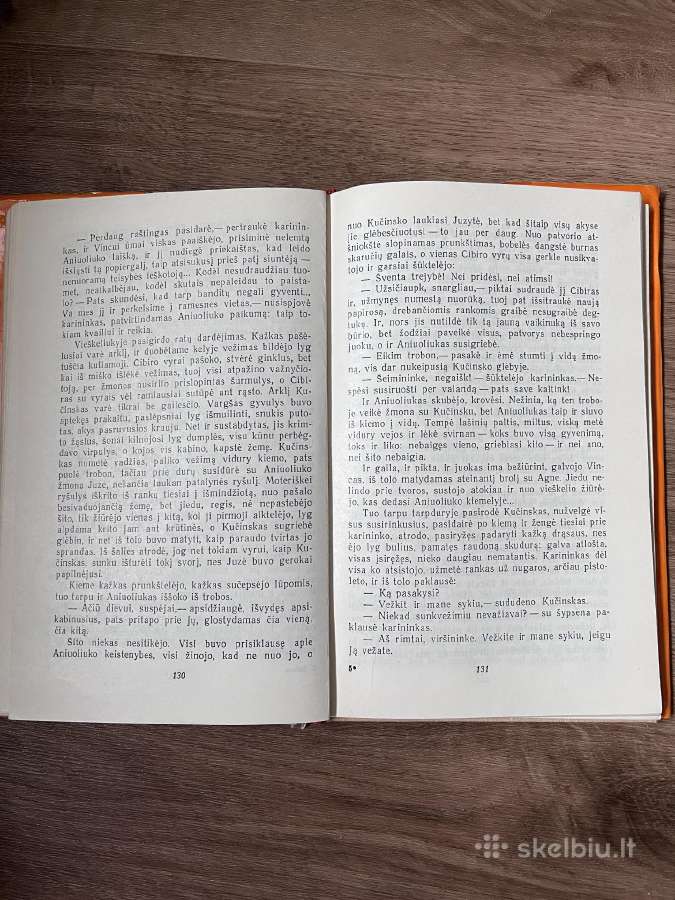 — Perdaug raštingas pasidarė,— pertraukė karinin-
kas, ir Vincui ūmai viskas paaiškėjo, prisiminė nelemtą
Aniuoliuko laišką, ir jį nudiegė priekaištas, kad leido
išsiųsti tą popiergalį, tarp atsisukusį prieš patį siuntėją —
nenuoramą teisybės ieškotoją... Kodėl nesudraudžiau tuo-
met, neatkalbėjau, kodėl skutais nepaleidau to paista-
lo? — Pats skundėsi, kad tarp banditų negali gyventi...
Va mes jį ir perkelsime į ramesnes vietas,— nusispjovė
karininkas, patvirtindamas Aniuoliuko paikumą: taip to-
kiam kvailiui ir reikia.
Vieškeliukyje pasigirdo ratų dardėjimas. Kažkas pašė-
lusiai varė arklį, ir duobėtame kelyje vežimas bildėjo lyg
tuščia kuliamoji. Cibiro vyrai pašoko, stvėrė ginklus, bet
kai iš miško išlėkė vežimas, tuoj visi atpažino važnyčio-
toją, per žmones nusirito prislopintas šurmulys, o Cibi-
ras su vyrais vėl ramiausiai sutūpė ant rąsto. Arklį Ku-
činskas varė tikrai be gailesčio. Vargšas gyvulys buvo
aptekęs prakaitu, paslėpsniai lyg išmuilinti, snukis puto-
tas, akys pasruvusios krauju. Net ir sustabdytas, jis krim-
to žąslus, šonai kilnojosi lyg dumplės, visu kūnu perbėg-
davo virpulys, o kojos vis kabino, kapstė žemę. Kučins-
kas numetė vadžias, paliko vežimą vidury kiemo, pats
puolė trobon, tačiau prie durų susidūrė su Aniuoliuko
žmona Juze, nešančia laukan patalynės ryšulį. Moteriškei
ryšulys iškrito iš rankų tiesiai į išmindžiotą, nuo pašalo
besivaduojančią žemę, bet jiedu, regis, nė nepastebėjo
šito, tik žiūrėjo vienas į kitą, kol ji pirmoji aiktelėjo, lyg
apalpdama krito jam ant krūtinės, o Kučinskas sugriebė
glėbin, ir net iš tolo buvo matyti, kaip paraudo tvirtas jo
sprandas. Iš šalies atrodė, jog net tokiam vyrui, kaip Ku-
činskas, sunku išturėti tokį svorį, nes Juzė buvo gerokai
papilnėjusi.
Kieme kažkas prunkštelėjo, kažkas sučepsėjo lūpomis,
tuo tarpu ir Aniuoliukas iššoko iš trobos.
— Ačiū dievui, suspėjai,— apsidžiaugė, išvydęs apsi-
kabinusius, pats pritapo prie jų, glostydamas čia vieną,
čia kitą.
Šito niekas nesitikėjo. Visi buvo prisiklausę apie
Aniuoliuko keistenybes, visi žinojo, kad ne nuo jo, o
130
nuo Kučinsko laukiasi Juzytė, bet kad šitaip visų akyse
jie glėbesčiuotųsi — to jau per daug. Nuo patvorio at-
šniokštė slopinamas prunkštimas, bobelės dangstė burnas
skaručių galais, o vienas Cibiro vyrų visa gerkle nusikva-
tojo ir garsiai šūktelėjo:
— Šventa trejybė! Nei pridėsi, nei atimsi!
— Užsičiaupk, snargliau,— piktai sudraudė jį Cibiras
ir, užmynęs numestą nuorūką, tuoj pat išsitraukė naują
papirosą, drebančiomis rankomis graibė nesusiraugę deg-
tuką. Ir, nors jis nutildė tik tą jauną vaikinuką iš savo
būrio, bet žodžiai paveikė visus, patvorys nebespringo
juoku, o ir Aniuoliukas susigriebė.
— Eikim trobon,— pasakė ir ėmė stumti į vidų žmo-
ną, vis dar nukeipusią Kučinsko glėbyje.
— Šeimininke, negaišk! — šūktelėjo karininkas.— Ne-
spėsi susiruošti per valandą — pats save kalink!
Ir Aniuoliukas skubėjo, krovėsi. Nežinia, ką ten trobo-
je veikė žmona su Kučinsku, bet Aniuoliukas taip ir siuvo
iš kiemo į vidų. Tempė lašinių paltis, miltus, viską metė
vidury vežos ir lėkė svirnan — koks buvo visą gyvenimą,
toks ir liko: nebaigęs vieno, griebiasi kito — ir nei ano,
nei šito nebaigia.
Ir gaila, ir pikta. Ir juokas ima bežiūrint, galvojo Vin-
cas, iš tolo matydamas ateinantį brolį su Agne. Jiedu ne-
lindo prie tvoros, sustojo atokiau ir nuo vieškelio žiūrė-
jo, kas dedasi Aniuoliuko kiemelyje...
Tuo tarpu tarpduryje pasirodė Kučinskas, nužvelgė vi-
sus susirinkusius, pasidairė po kiemą ir žengė tiesiai prie
karininko, atrodė, pasiryžęs padaryti kažką drąsaus, nes
ėjo lyg bulius, pamatęs raudoną skudurą: galva atlošta,
visas įsirėžęs, nieko daugiau nematantis. Karininkas dėl
visa ko atsistojo, užmetė rankas už nugaros, arčiau pisto-
leto, ir iš tolo paklausė:
— Ką pasakysi?
— Vežkit ir mane sykiu,— sududeno Kučinskas.
— Niekad sunkvežimiu nevažiavai? — su šypsena pa-
klausė karininkas.
— Aš rimtai, viršininke. Vežkite ir mane sykiu, jeigu
Ją vežate.
5*
131
skelbiu.lt